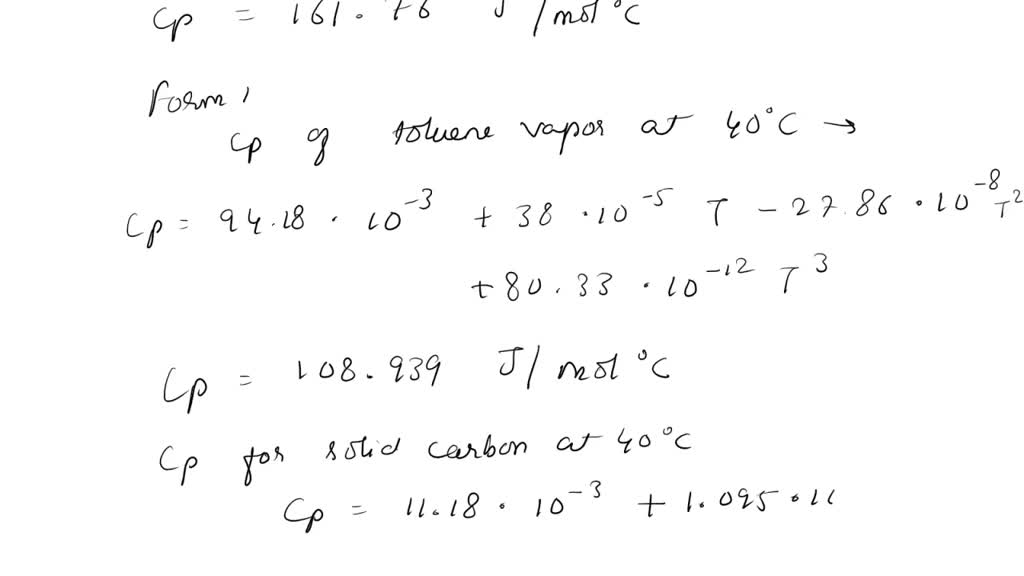 Cp = 161.76 J/mol °C
Form,
Cp of toluene vapor at 40°C →
Cp = 94.18 · 10⁻³ + 38 · 10⁻⁵ T - 27.86 · 10⁻⁸ T²
+ 80.33 · 10⁻¹² T³
Cp = 108.939 J/mol °C
Cp for solid carbon at 40°C
Cp = 11.18 · 10⁻³ + 1.095 ·